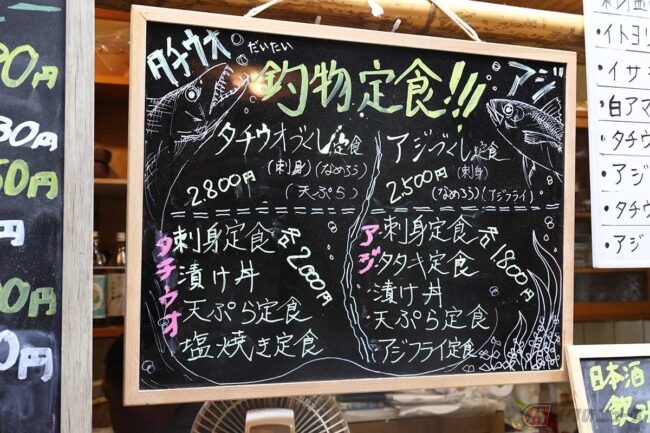 タチウオ
だいたい
釣物定食!!!
アジ
タチウオづくし定食
(刺身)(なめろう)
(天ぷら)
2.800円
アジづくし定食
(刺身)
(なめろう)(アジフライ)
2.500円
タチウオ
刺身定食
漬け丼
天ぷら定食
塩焼き定食
各2.000円
アジ
刺身定食
タタキ定食
漬け丼
天ぷら定食
アジフライ定食
各1.800円
円
30円
50円
円
00円
0円
・イトヨリ
・イサキ
・白アマ
・タチウ
・アジ
・タチウ
・アジ
日本酒
飲み